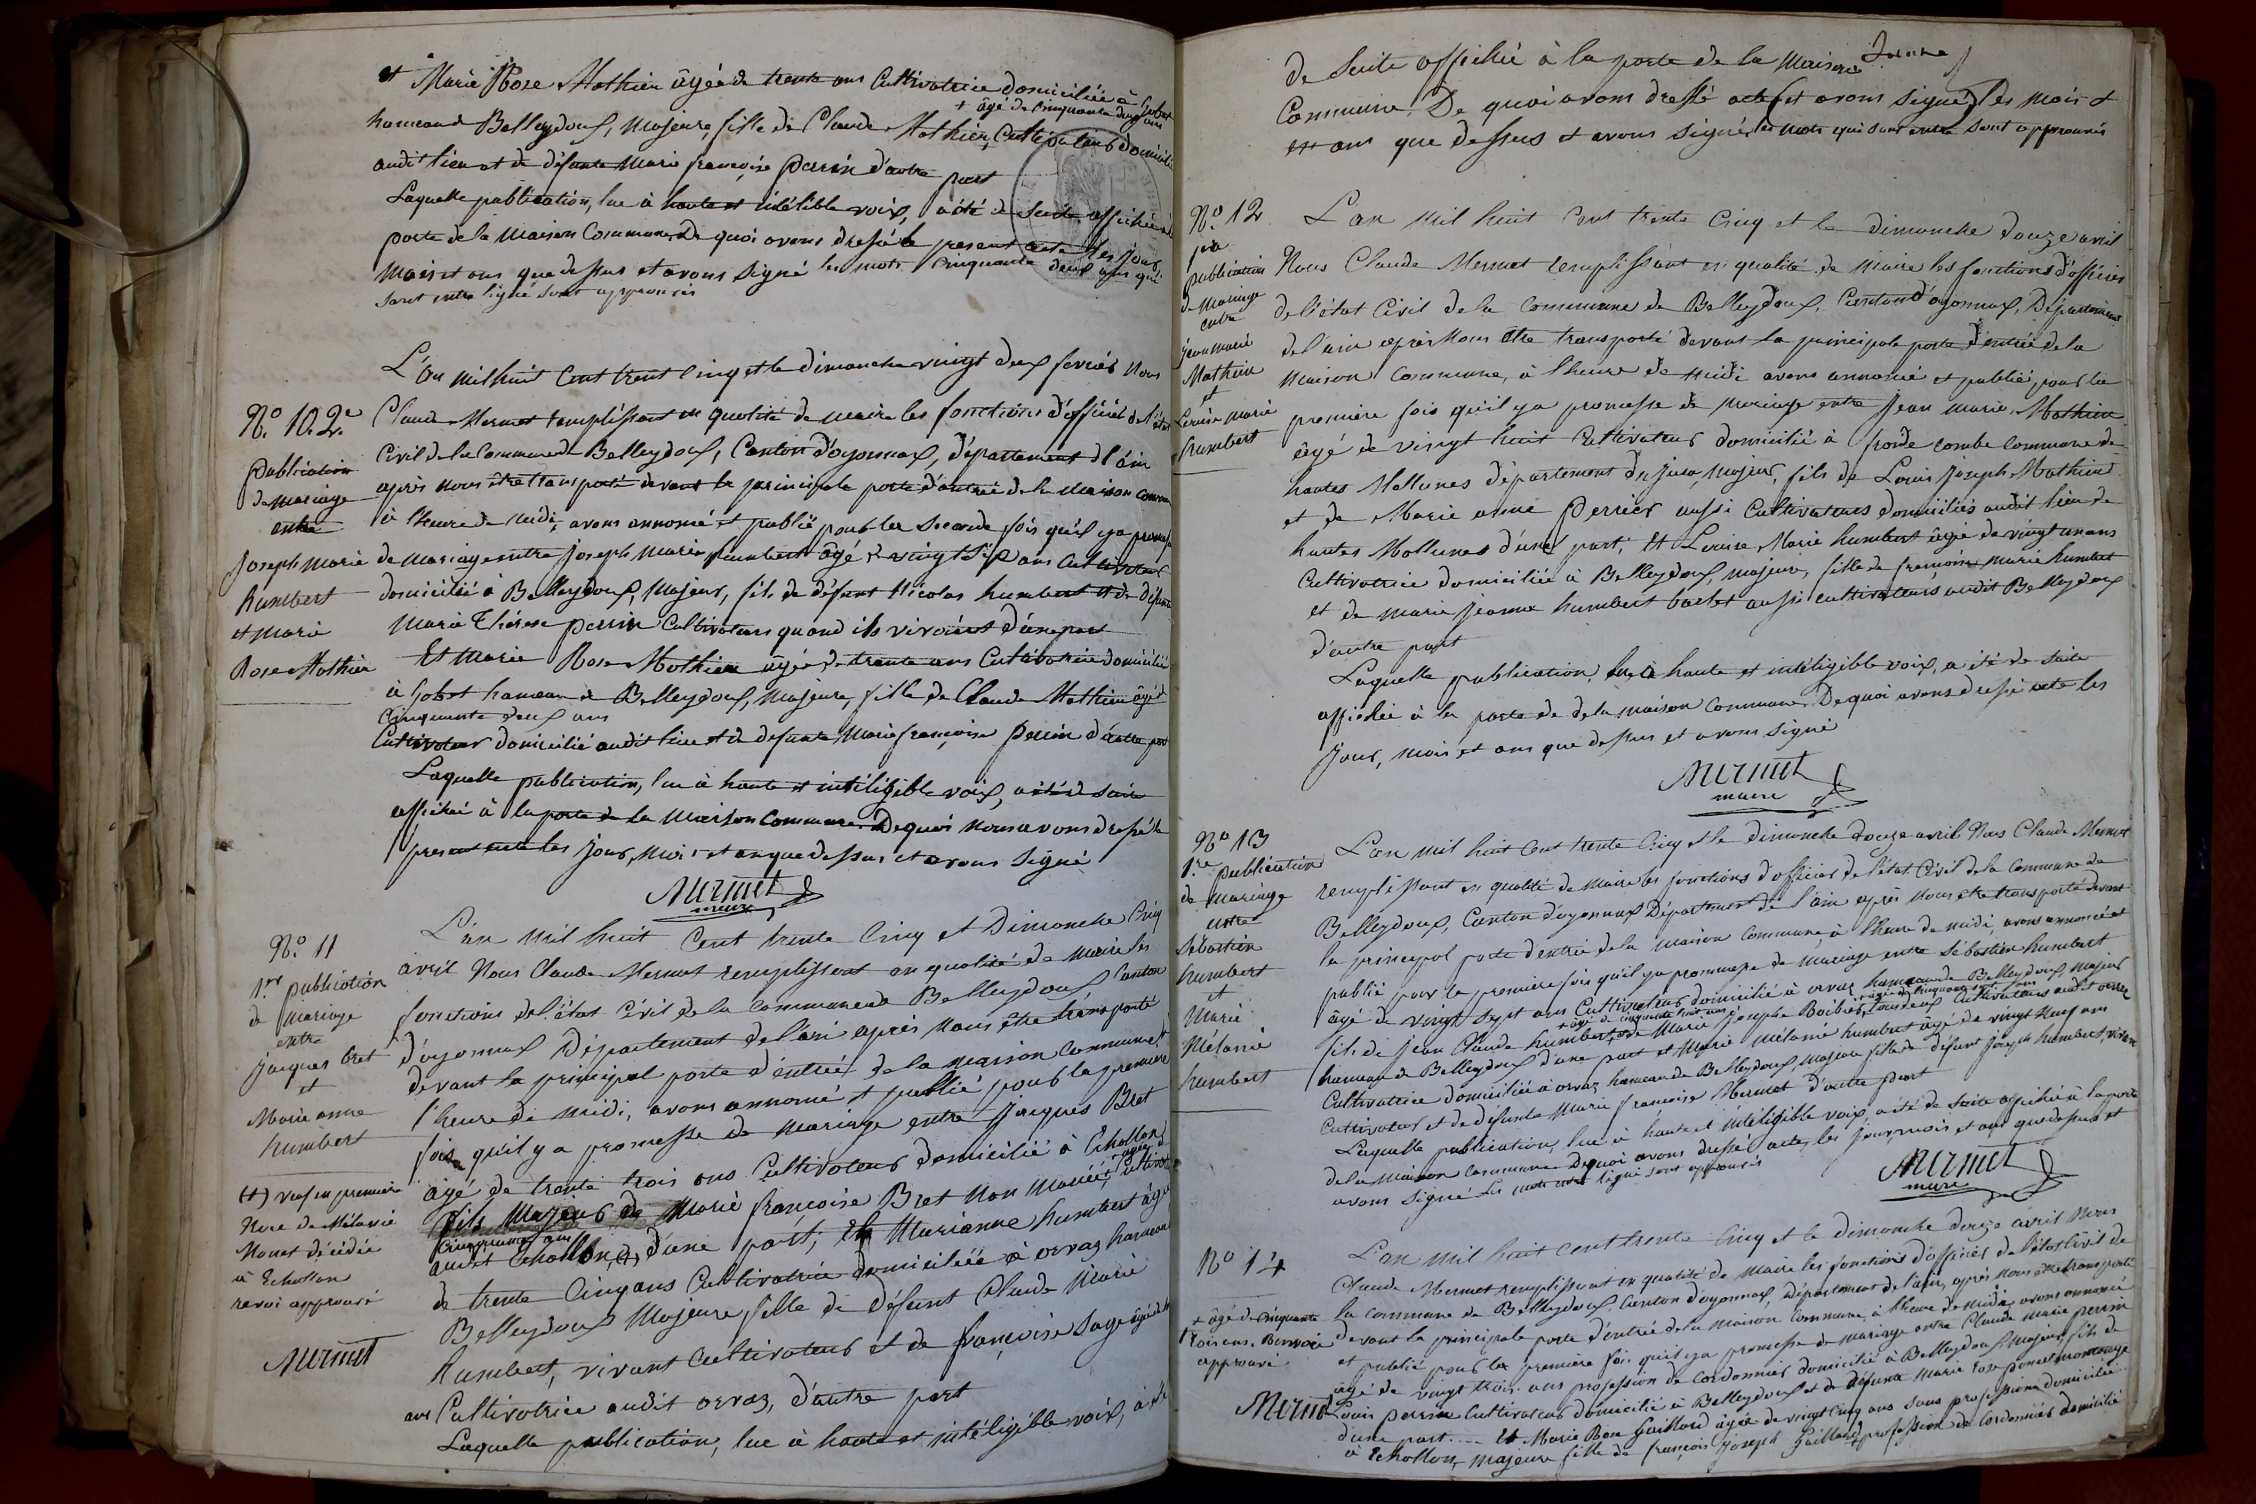 et Marie Rose Mathieu âgée de trente ans Cultivatrice domiciliée à Gobet
+ âgé de Cinquante deux ans
hameau de Belleydoux, Majeure, fille de Claude Mathieu, Cultivateur domicilié
audit lieu et de défunte Marie françoise perrin d'autre part
Laquelle publication, lue à haute et intélible voix, a été de Suite affichée à la
porte de la Maison Commune De quoi avons dressé le present acte les jour
Mois et ans que dessus et avons Signé les mots Cinquante deux ans qui
sont entre ligné sont approuvés
N.º 10. 2.e
publication
de Mariage
entre
Joseph Marie
humbert
et Marie
Rose Mathieu
L'an mil huit Cent trent Cinq et le dimanche vingt deux fevrier Nous
Claude Mermet remplissant en qualité de maire les fonctions d'officier de l'état
Civil de la Commune de Belleydoux, Canton d'oyonnax, département de l'ain
après nous être transporté devant la principale porte d'entrée de la Maison Commune
à l'heure de midi, avons annoncé et publié pour la seconde fois qu'il y a promesse
de Mariage entre Joseph Marie humbert âgé de vingt six ans Cultivateur
domicilié à Belleydoux, Majeur, fils de défunt Nicolas humbert et de défunte
Marie Thérese perrin Cultivateurs quand ils vivoient d'une part
Et Marie Rose Mathieu âgée de trente ans Cultivatrice domiciliée
à Gobet hameau de Belleydoux, Majeure, fille de Claude Mathieu âgé de
Cinquante deux ans
Cultivateur domicilié audit lieu et de defunte Marie françoise perrin d'autre part
Laquelle publication, lue à haute et intéligible voix, a été de suite
affichée à la porte de la Maison Commune. De quoi Nous avons dressé le
present acte les jour, Mois et an que dessus et avons Signé
Mermet
maire
N.º 11
1.re publication
de Mariage
entre
Jacques bret
et
Marie anne
humbert
(+) veuf en premiere
Noce de Mélanie
Monet décédée
à Echollon
renvoi approuvé
Mermet
L'an mil huit Cent trente Cinq et Dimanche Cinq
avril Nous Claude Mermet remplissant en qualité de Maire les
fonctions de l'état Civil de la Commune de Belleydoux Canton
d'oyonnax Département de l'ain après Nous être transporté
devant la principal porte d'entrée de la Maison Commune, à
l'heure de Midi, avons annoncé et publié pour la premiere
fois qu'il y a promesse de Mariage entre Jacques Bret
âgé de trente trois ans Cultivateur domicilié à Echollon
fils Majeur de Marie françoise Bret Non Mariée, âgée de Cultivatrice
Cinquante ans
audit Echollon, (+) d'une part; Et Marianne humbert âgée
de trente Cinq ans Cultivatrice domiciliée à orvaz hameau
Belleydoux Majeure fille de défunt Claude Marie
humbert, vivant Cultivateur et de françoise Sage âgée de
ans Cultivatrice audit orvaz, d'autre part
Laquelle publication, lue à haute et intéligible voix, a été
de Suite affichée à la porte de la Maison
Commune. De quoi avons dressé acte (et avons signé) les mois et
ans que dessus et avons signé, les mots qui sont entre sont approuvés
N.º 12
publication
de Mariage
entre
Jean marie
Mathieu
et
Louise Marie
humbert
L'an mil huit Cent trente Cinq et le dimanche douze avril
Nous Claude Mermet remplissant en qualité de Maire les fonctions d'officier
de l'état Civil de la Commune de Belleydoux, Canton d'oyonnax, Département
de l'ain après Nous être transporté devant la principale porte d'entrée de la
Maison Commune, à l'heure de midi avons annoncé et publié, pour la
premiere fois qu'il y a promesse de Mariage entre Jean Marie Mathieu
âgé de vingt huit Cultivateur domicilié à froide combe Commune de
hautes Mollunes département du Jura, Majeur, fils de Louis Joseph Mathieu
et de Marie aimé Perrier aussi Cultivateurs domiciliés audit lieu de
hautes Mollunes d'une part; Et Louise Marie humbert âgée de vingt un ans
Cultivatrice domiciliée à Belleydoux, Majeure, fille de françois marie humbert
et de marie Jeanne humbert baclet aussi cultivateurs audit Belleydoux
d'autre part
Laquelle publication lue à haute et intéligible voix, a été de suite
affichée à la porte de de la maison Commune. De quoi avons dressé acte les
Jour, mois et ans que dessus et avons signé
Mermet
maire
N.º 13
1.re publication
de Mariage
entre
Sébastien
humbert
et
Marie
Mélanie
humbert
L'an mil huit Cent trente Cinq et le dimanche douze avril Nous Claude Mermet
remplissant en qualité de Maire les fonctions d'officier de l'état Civil de la Commune de
Belleydoux, Canton d'oyonnax Département de l'ain après Nous être transporté devant
la principal porte d'entrée de la Maison Commune, à l'heure de midi, avons annoncé et
publié pour la premiere fois qu'il y a prommesse de Mariage entre Sébastien humbert
âgé de vingt sept ans Cultivateur domicilié à orvaz hameau de Belleydoux, Majeur
fils de Jean Claude humbert, et de Marie Josephe tous deux Cultivateurs audit orvaz
hameau de Belleydoux d'une part et Marie Mélanie humbert âgé de vingt neuf ans
Cultivatrice domiciliée à orvaz hameau de Belleydoux, Majeure fille de défunt Joseph humbert, vivant
Cultivateur et de défunte Marie francoise Mermet d'autre part
Laquelle publication, lue à haute et intéligible voix, a été de Suite affichée à la porte
de la Maison Commune De quoi avons dressé acte, les Jour, mois et ans que dessus et
avons Signé Les mots entre ligné sont approuvés
Mermet
maire
N.º 14
+ âgé de Cinquante
trois ans. Renvoi
approuvé
Mermet
L'an mil huit cent trente Cinq et le dimanche douze avril Nous
Claude Mermet remplissant en qualité de Maire les fonctions d'officier de l'état Civil de
la Commune de Belleydoux Canton d'oyonnax, Département de l'ain, après Nous être transporté
devant la principale porte d'entrée de la Maison Commune, à l'heure de Midi avons annoncé
et publié pour la premiere fois qu'il y a promesse de Mariage entre Claude Marie perrin
âgé de vingt trois ans profession de Cordonnier domicilié à Belleydoux, Majeur, fils de
Louis perrin Cultivateur domicilié à Belleydoux et de défunte Marie Rose poncet montange
d'une part. Et Marie Rose Gaillard âgée de vingt Cinq ans Sans profession domiciliée
à Echollon, Majeure fille de françois Joseph Gaillard profession de Cordonnier domicilié